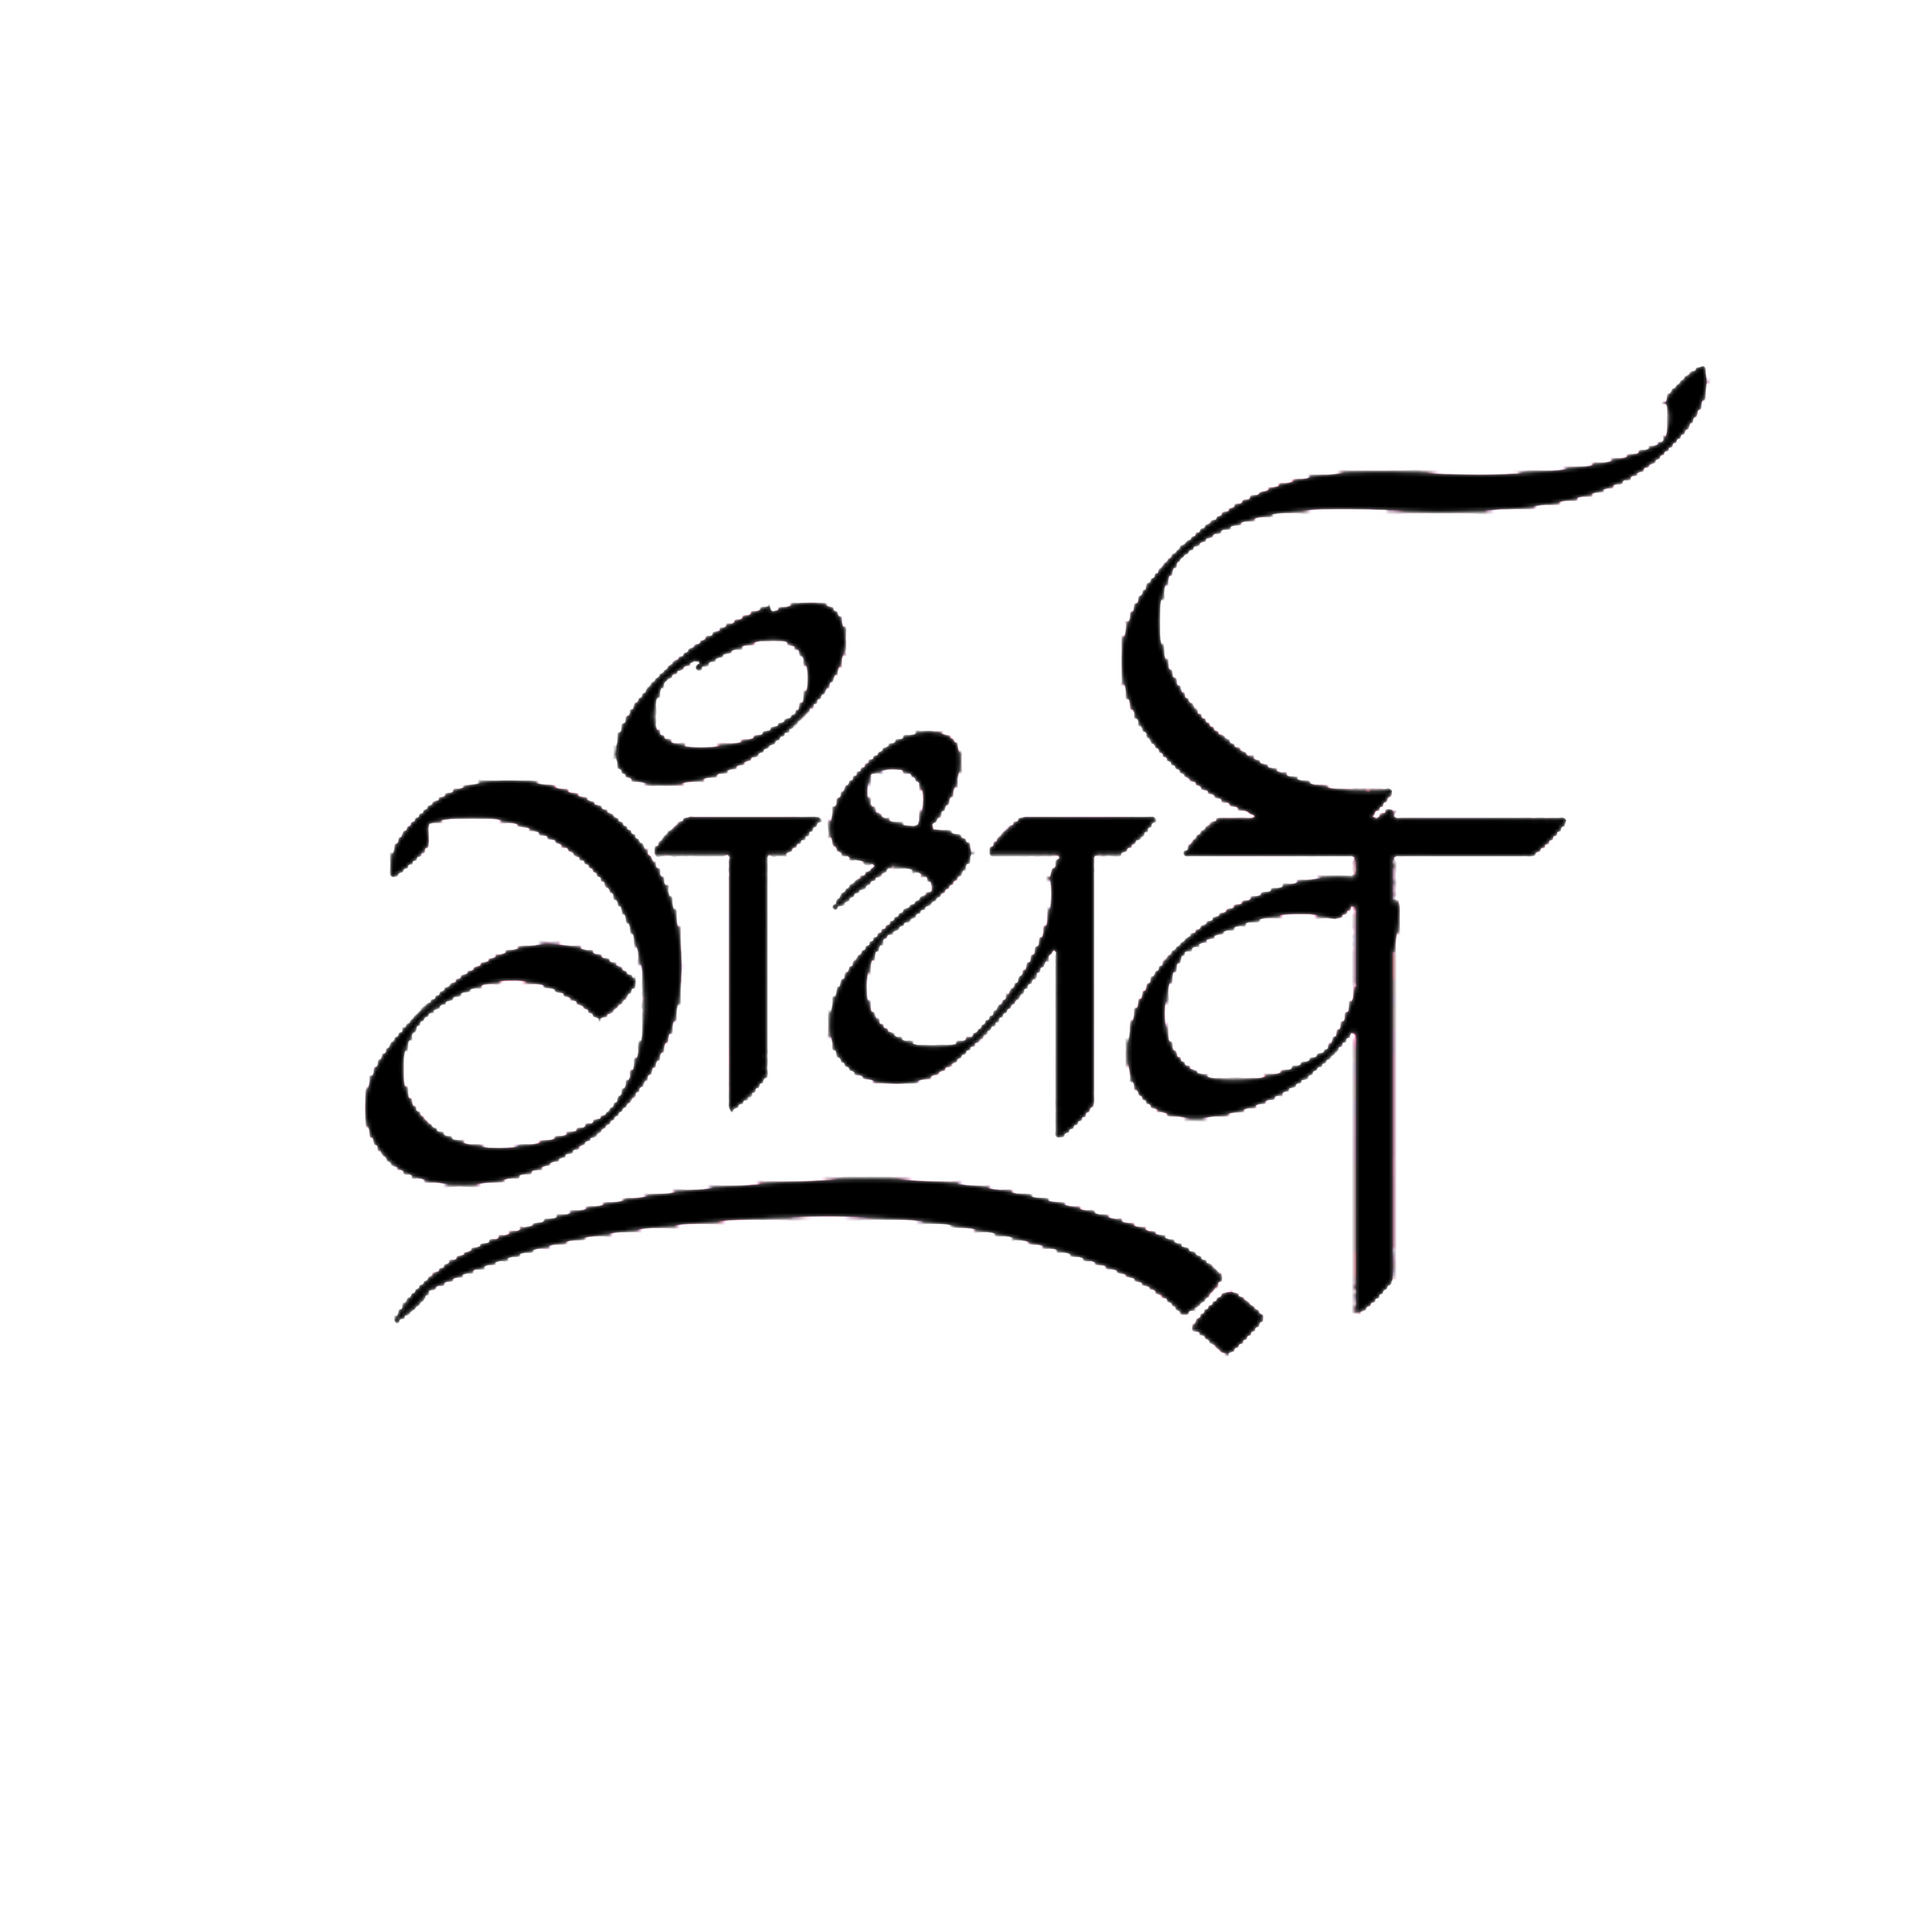 गंधर्व